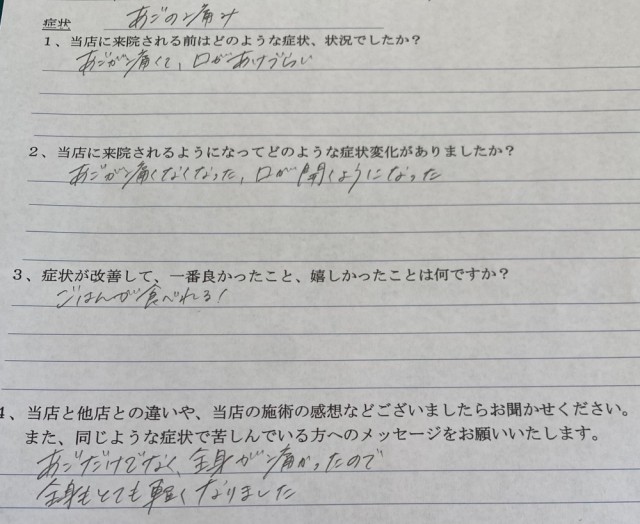 症状 あごの痛み
1、当店に来院される前はどのような症状、状況でしたか？
あごが痛くて、口があけづらい
2、当店に来院されるようになってどのような症状変化がありましたか？
あごが痛くなくなった、口が開くようになった
3、症状が改善して、一番良かったこと、嬉しかったことは何ですか？
ごはんが食べれる！
4、当店と他店との違いや、当店の施術の感想などございましたらお聞かせください。
また、同じような症状で苦しんでいる方へのメッセージをお願いいたします。
あごだけでなく、全身が痛かったので
全身もとても軽くなりました